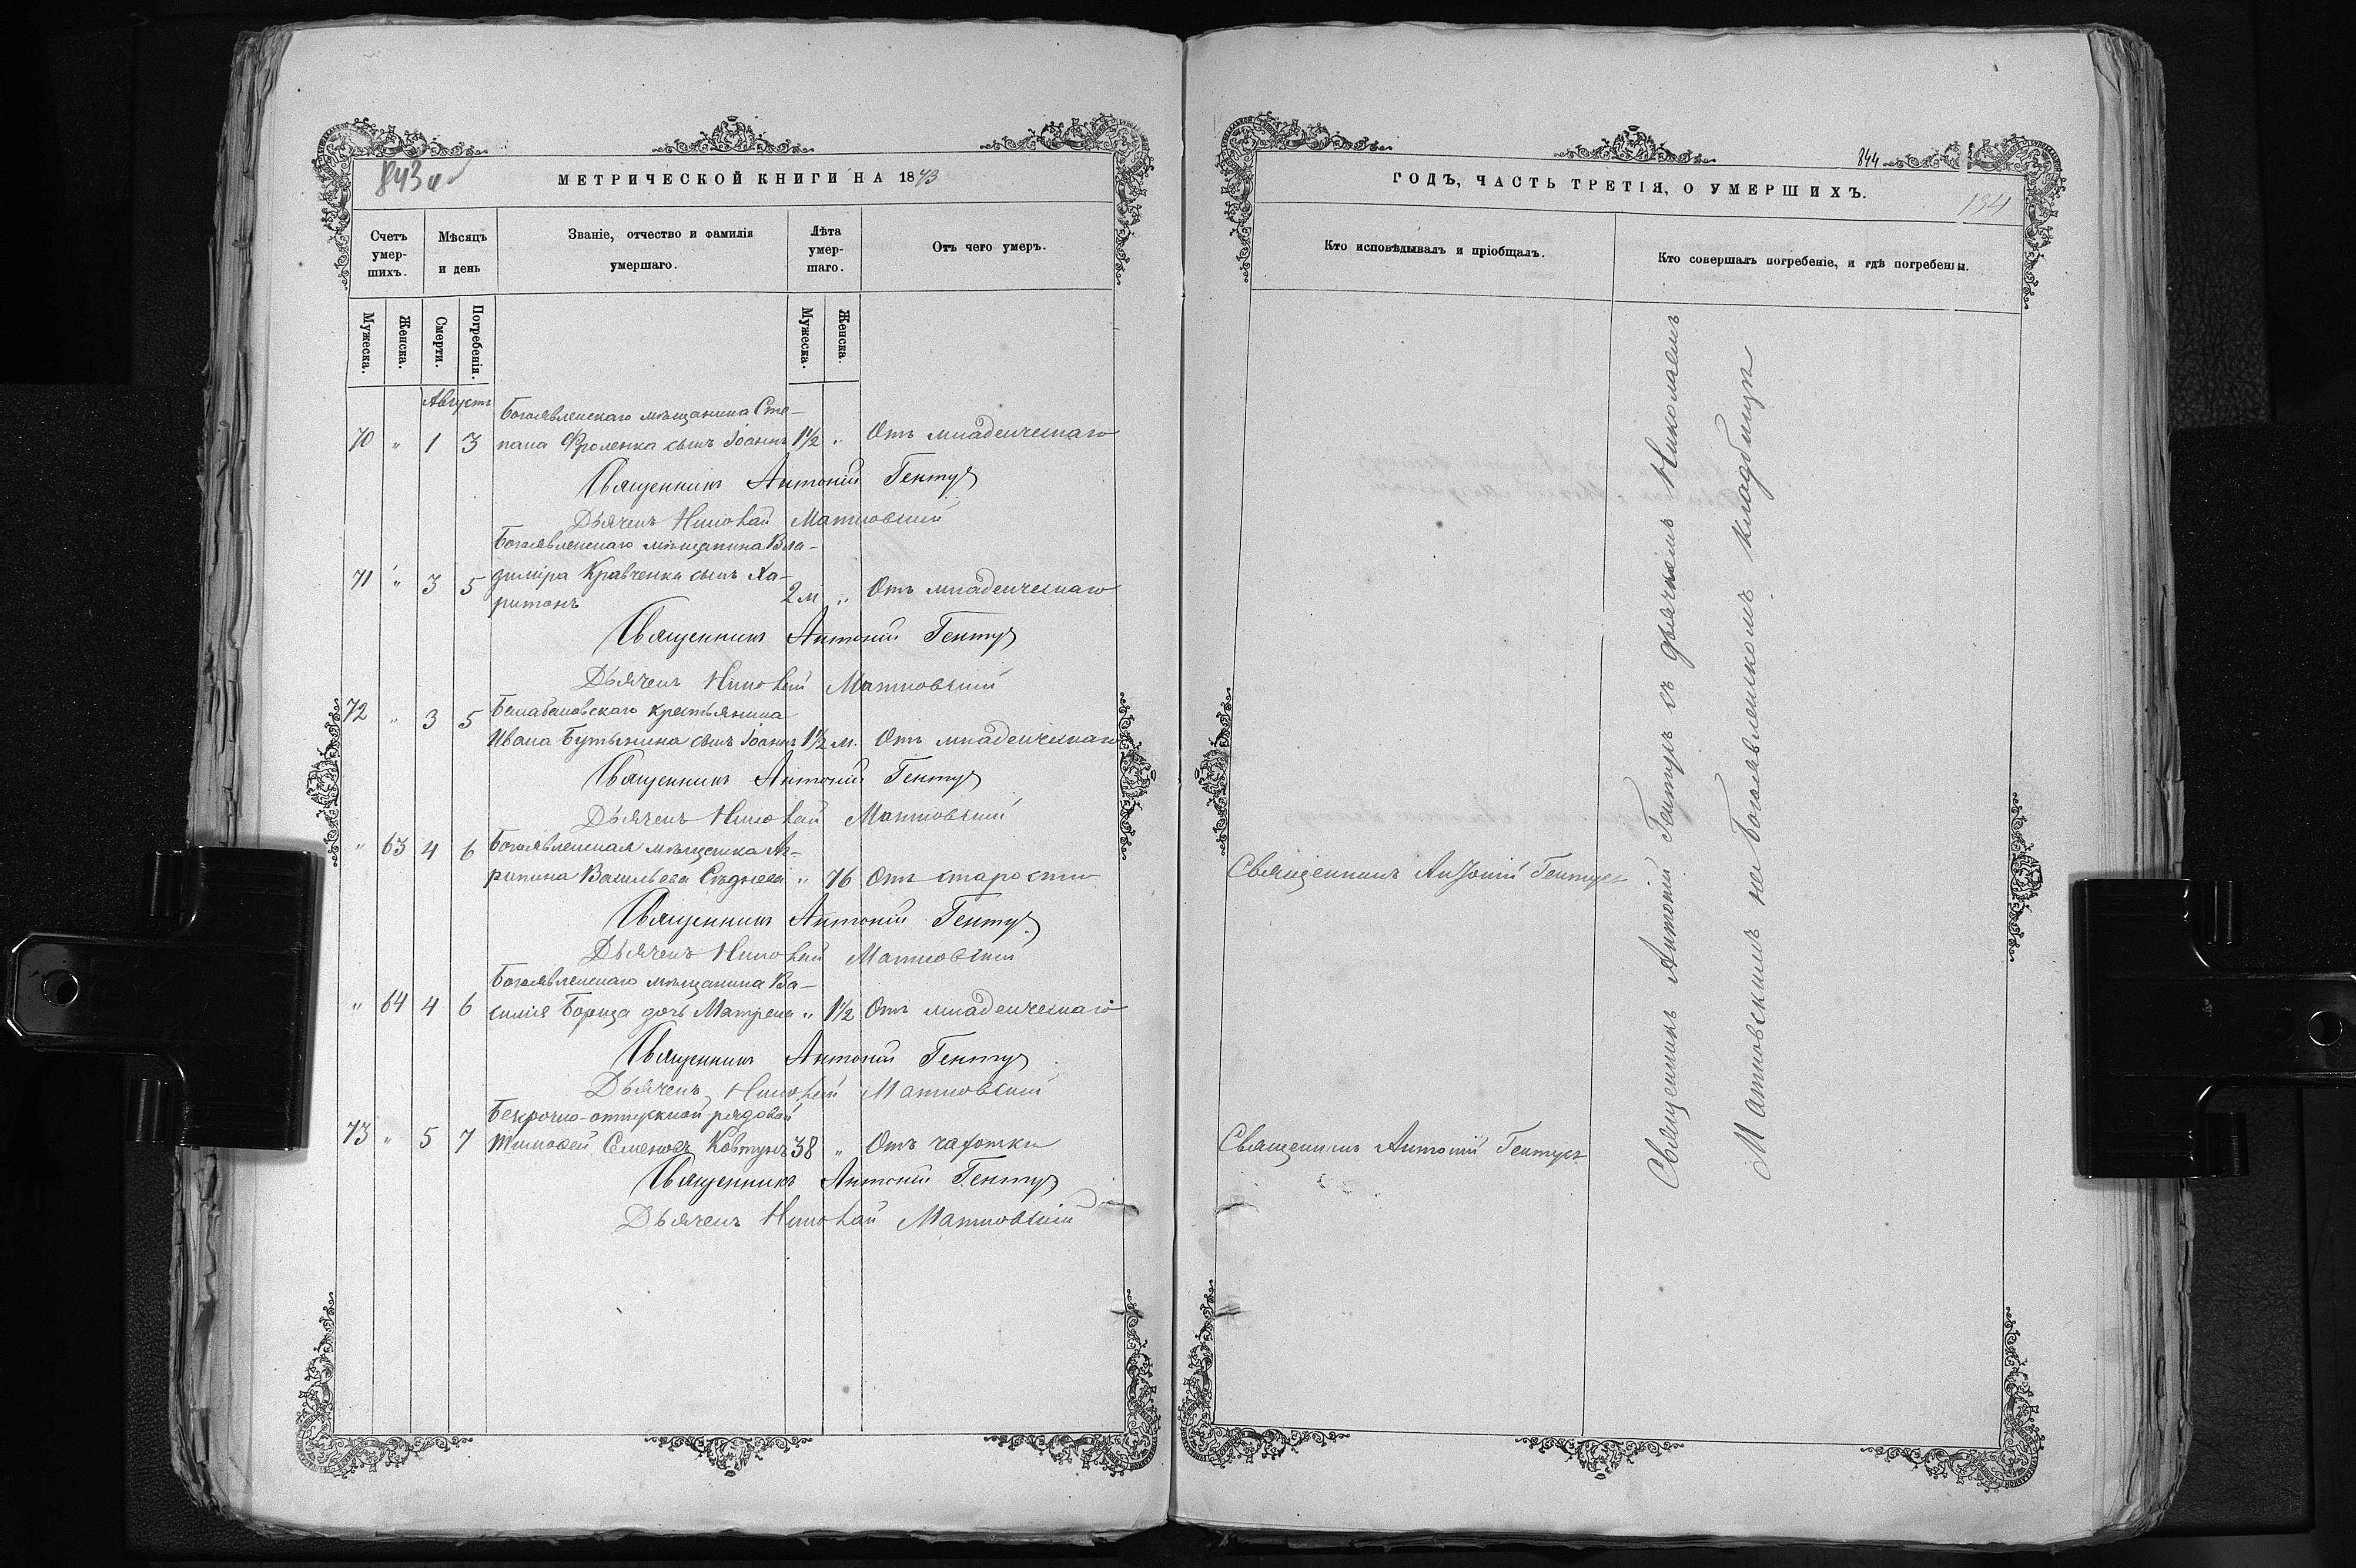 843
МЕТРИЧЕСКОЙ КНИГИ НА 1873
Счетъ умер-шихъ.
Мѣсяцъ и день
Званіе, отчество и фамилія умершаго.
Лѣта умер-шаго.
Отъ чего умеръ.
Мужеска.
Женска.
Смерти.
Погребенія.
Мужеска.
Женска.
Августъ
Богоявленскаго мѣщанина Сте-
70 " 1 3 пана Фроленка сынъ Іоаннъ 1½ " Отъ младенческаго
Священникъ Антоній Гентуръ
Дьячекъ Николай Матковскій
Богоявленскаго мѣщанина Вла-
71 " 3 5 диміра Кравченка сынъ Ха-
ритонъ 2 м " Отъ младенческаго
Священникъ Антоній Гентуръ
Дьячекъ Николай Матковскій
72 " 3 5 крестьянина
Ивана сынъ Іоаннъ 1½ м. Отъ младенческаго
Священникъ Антоній Гентуръ
Дьячекъ Николай Матковскій
" 63 4 6 Богоявленская мѣщанка Аг-
рипина Васильева " 76 Отъ старости
Священникъ Антоній Гентуръ
Дьячекъ Николай Матковскій
Богоявленскаго мѣщанина Ва-
" 64 4 6 силія дочь Матрена " 1½ Отъ младенческаго
Священникъ Антоній Гентуръ
Дьячекъ Николай Матковскій
Безсрочно-отпускной рядовой
73 " 5 7 Тимофей Семеновъ Ковтунъ 38 " Отъ чахотки
Священникъ Антоній Гентуръ
Дьячекъ Николай Матковскій
844
ГОДЪ, ЧАСТЬ ТРЕТІЯ, О УМЕРШИХЪ.
194
Кто исповѣдывалъ и пріобщалъ.
Кто совершалъ погребеніе, и гдѣ погребены.
Священникъ Антоній Гентуръ
Священникъ Антоній Гентуръ
Священникъ Антоній Гентуръ съ дьячкомъ Николаемъ
Матковскимъ на Богоявленскомъ кладбищѣ